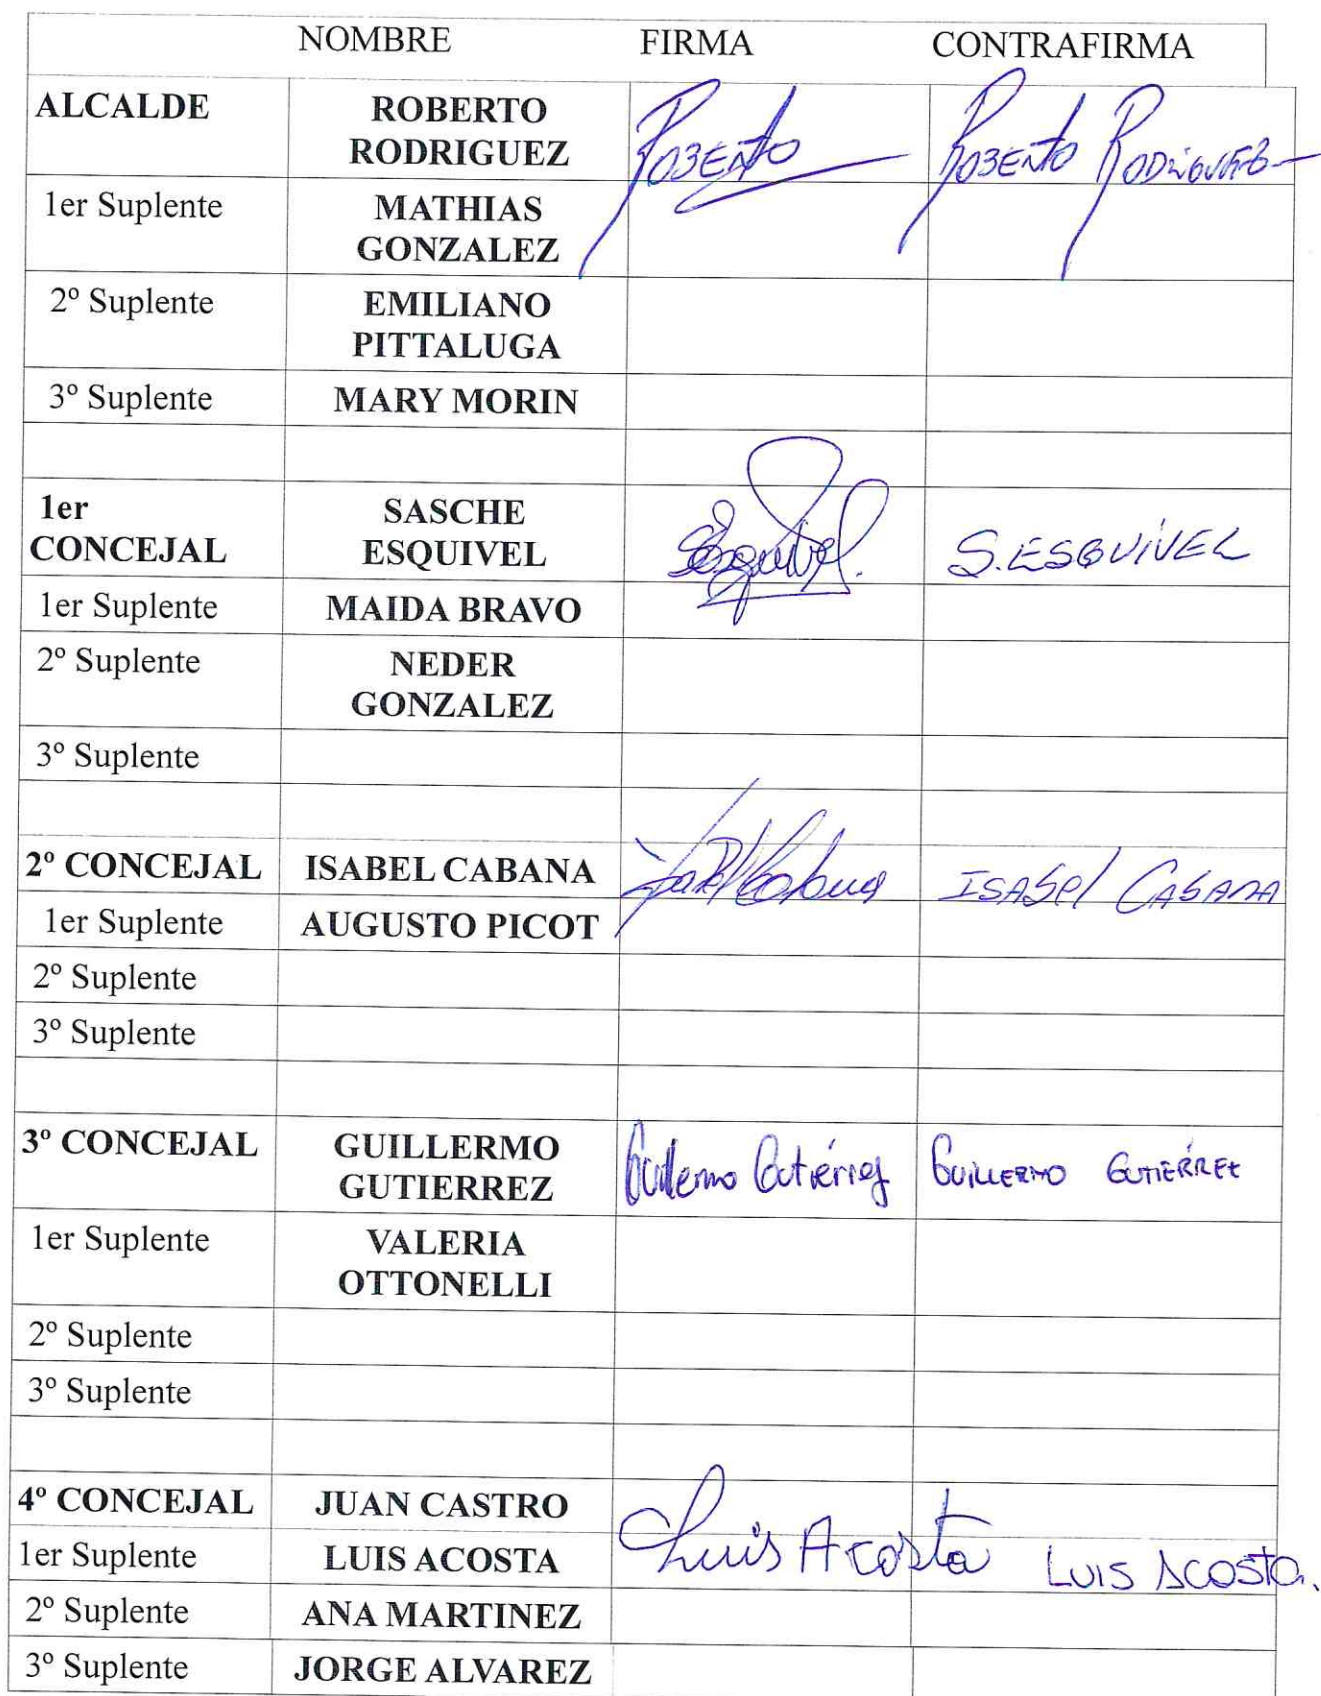 NOMBRE FIRMA CONTRAFIRMA
ALCALDE ROBERTO Roberto Roberto Rodriguez
RODRIGUEZ
1er Suplente MATHIAS
GONZALEZ
2º Suplente EMILIANO
PITTALUGA
3º Suplente MARY MORIN
1er SASCHE
CONCEJAL ESQUIVEL Esquivel. S. ESQUIVEL
1er Suplente MAIDA BRAVO
2º Suplente NEDER
GONZALEZ
3º Suplente
2º CONCEJAL ISABEL CABANA Isabel Cabana ISABEL CABANA
1er Suplente AUGUSTO PICOT
2º Suplente
3º Suplente
3º CONCEJAL GUILLERMO Guillermo Gutiérrez GUILLERMO GUTIÉRREZ
GUTIERREZ
1er Suplente VALERIA
OTTONELLI
2º Suplente
3º Suplente
4º CONCEJAL JUAN CASTRO
1er Suplente LUIS ACOSTA Luis Acosta LUIS ACOSTA.
2º Suplente ANA MARTINEZ
3º Suplente JORGE ALVAREZ